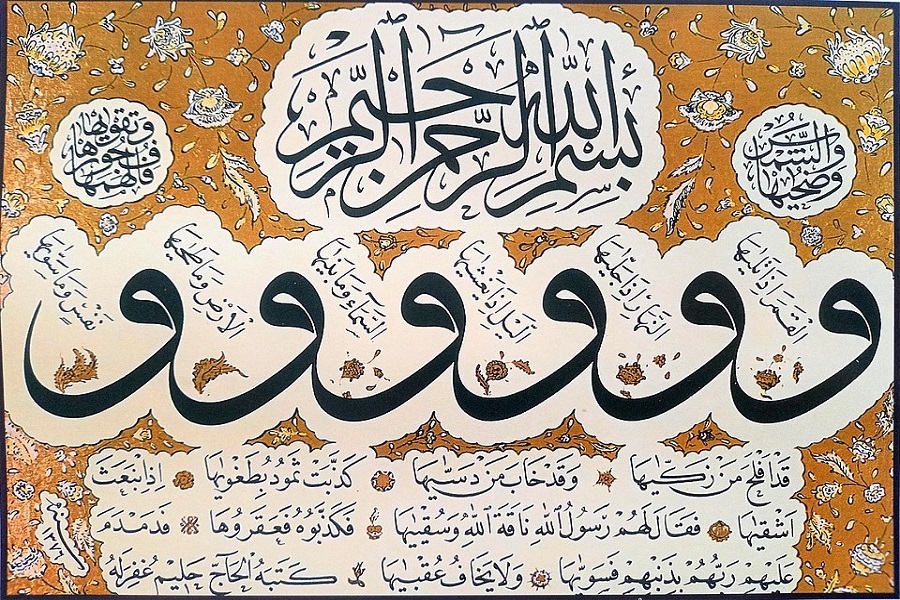 بِسْمِ اللّٰهِ الرَّحْمٰنِ الرَّحِيمِ
وَالشَّمْسِ وَضُحٰيهَا
وَالْقَمَرِ اِذَا تَلٰيهَا
وَالنَّهَارِ اِذَا جَلّٰيهَا
وَالَّيْلِ اِذَا يَغْشٰيهَا
وَالسَّمَآءِ وَمَا بَنٰيهَا
وَالْاَرْضِ وَمَا طَحٰيهَا
وَنَفْسٍ وَمَا سَوّٰيهَا
فَاَلْهَمَهَا فُجُورَهَا وَتَقْوٰيهَا
قَدْ اَفْلَحَ مَنْ زَكّٰيهَا وَقَدْ خَابَ مَنْ دَسّٰيهَا كَذَّبَتْ ثَمُودُ بِطَغْوٰيهَا اِذِ انْبَعَثَ
اَشْقٰيهَا فَقَالَ لَهُمْ رَسُولُ اللّٰهِ نَاقَةَ اللّٰهِ وَسُقْيٰيهَا فَكَذَّبُوهُ فَعَقَرُوهَا فَدَمْدَمَ
عَلَيْهِمْ رَبُّهُمْ بِذَنْبِهِمْ فَسَوّٰيهَا وَلَا يَخَافُ عُقْبٰيهَا كَتَبَهُ الْحَاجّ حَلِيم غُفِرَ لَهُ